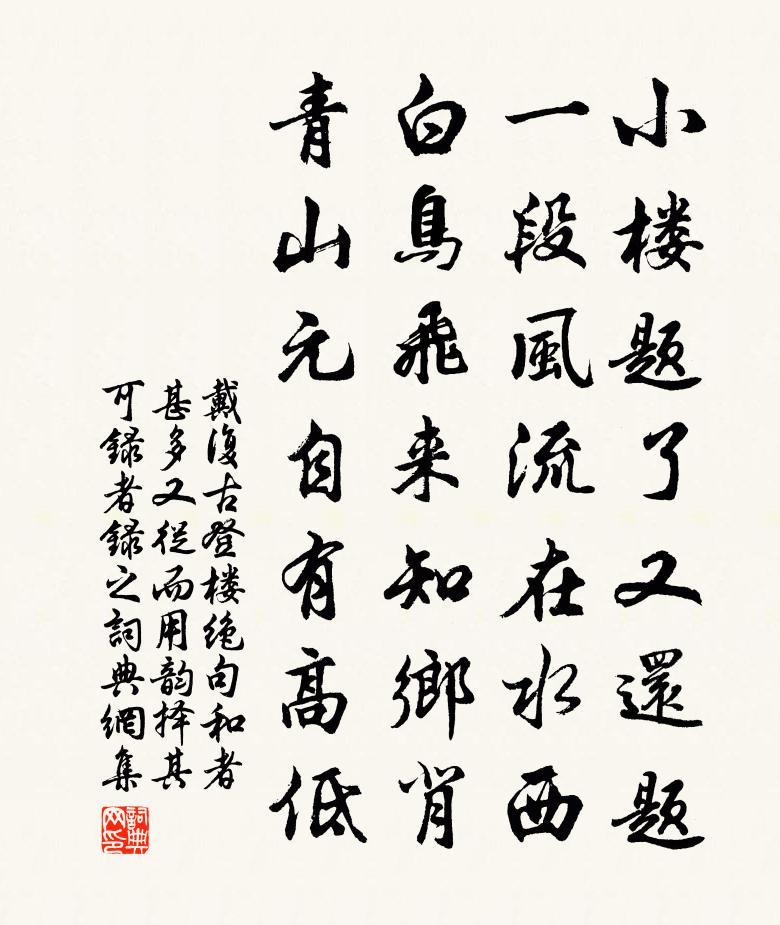 小楼题了又還题
一段風流在水西
白鳥飛来知鄉肖
青山元自有高低
戴復古登楼绝句和者
甚多又從而用韵择其
可録者録之詞典網集
詞典网印